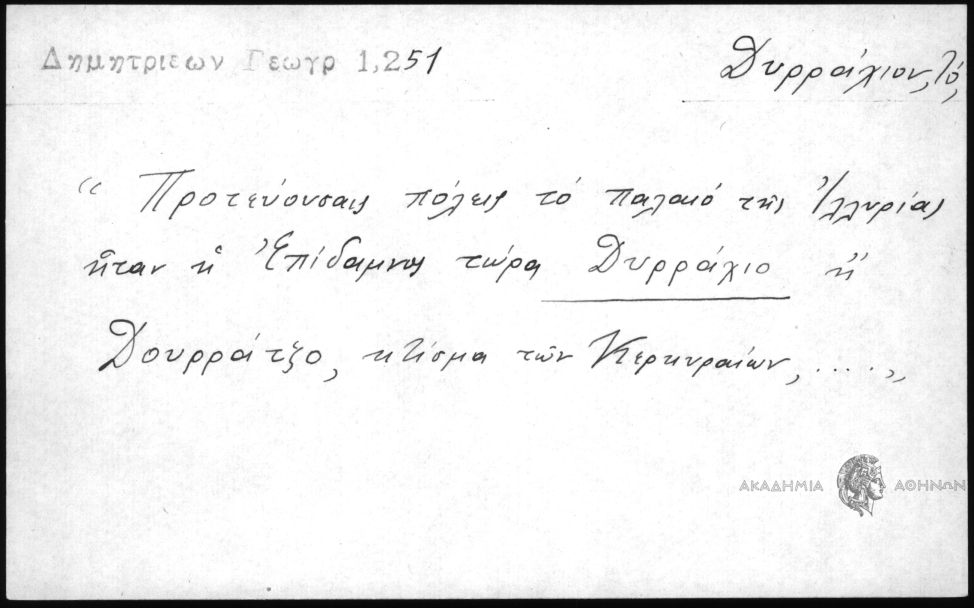 Δημητριεων Γεωγρ 1,251
Δυρράχιον, τό,
“ Προτεύουσαις πόλεις τό παλαιό τῆς Ἰλλυρίας
ἦταν ἡ Ἐπίδαμνος τώρα Δυρράχιο ἤ
Δουρράτζο, κτίσμα τῶν Κερκυραίων, ....„
ΑΚΑΔΗΜΙΑ ΑΘΗΝΩΝ